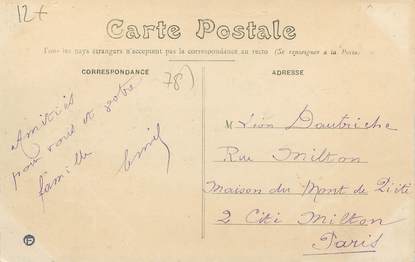 12+
Carte Postale
Tous les pays étrangers n'acceptent pas la correspondance au recto (Se renseigner à la Poste)
CORRESPONDANCE
ADRESSE
78)
Amitiés
pour vous et votre
famille
Emil
M Léon Dautriche
Rue Milton
Maison du Mont de Piété
2 Cité Milton
Paris